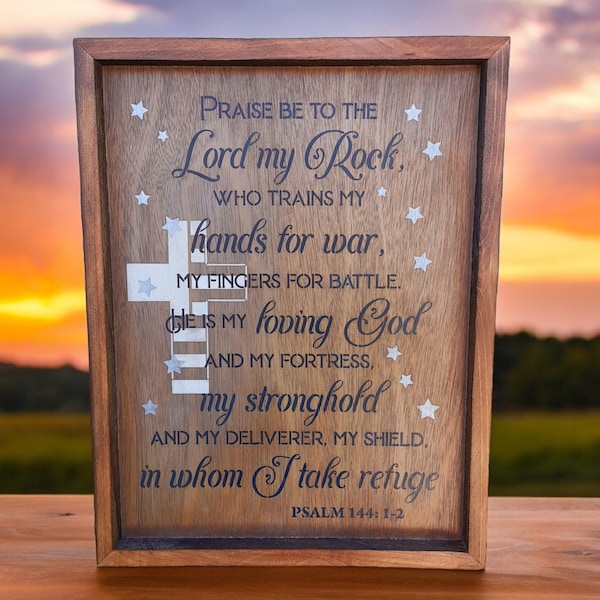 PRAISE BE TO THE
Lord my Rock,
WHO TRAINS MY
hands for war,
MY FINGERS FOR BATTLE.
HE IS MY loving God
AND MY FORTRESS,
my stronghold
AND MY DELIVERER, MY SHIELD,
in whom I take refuge
PSALM 144: 1-2